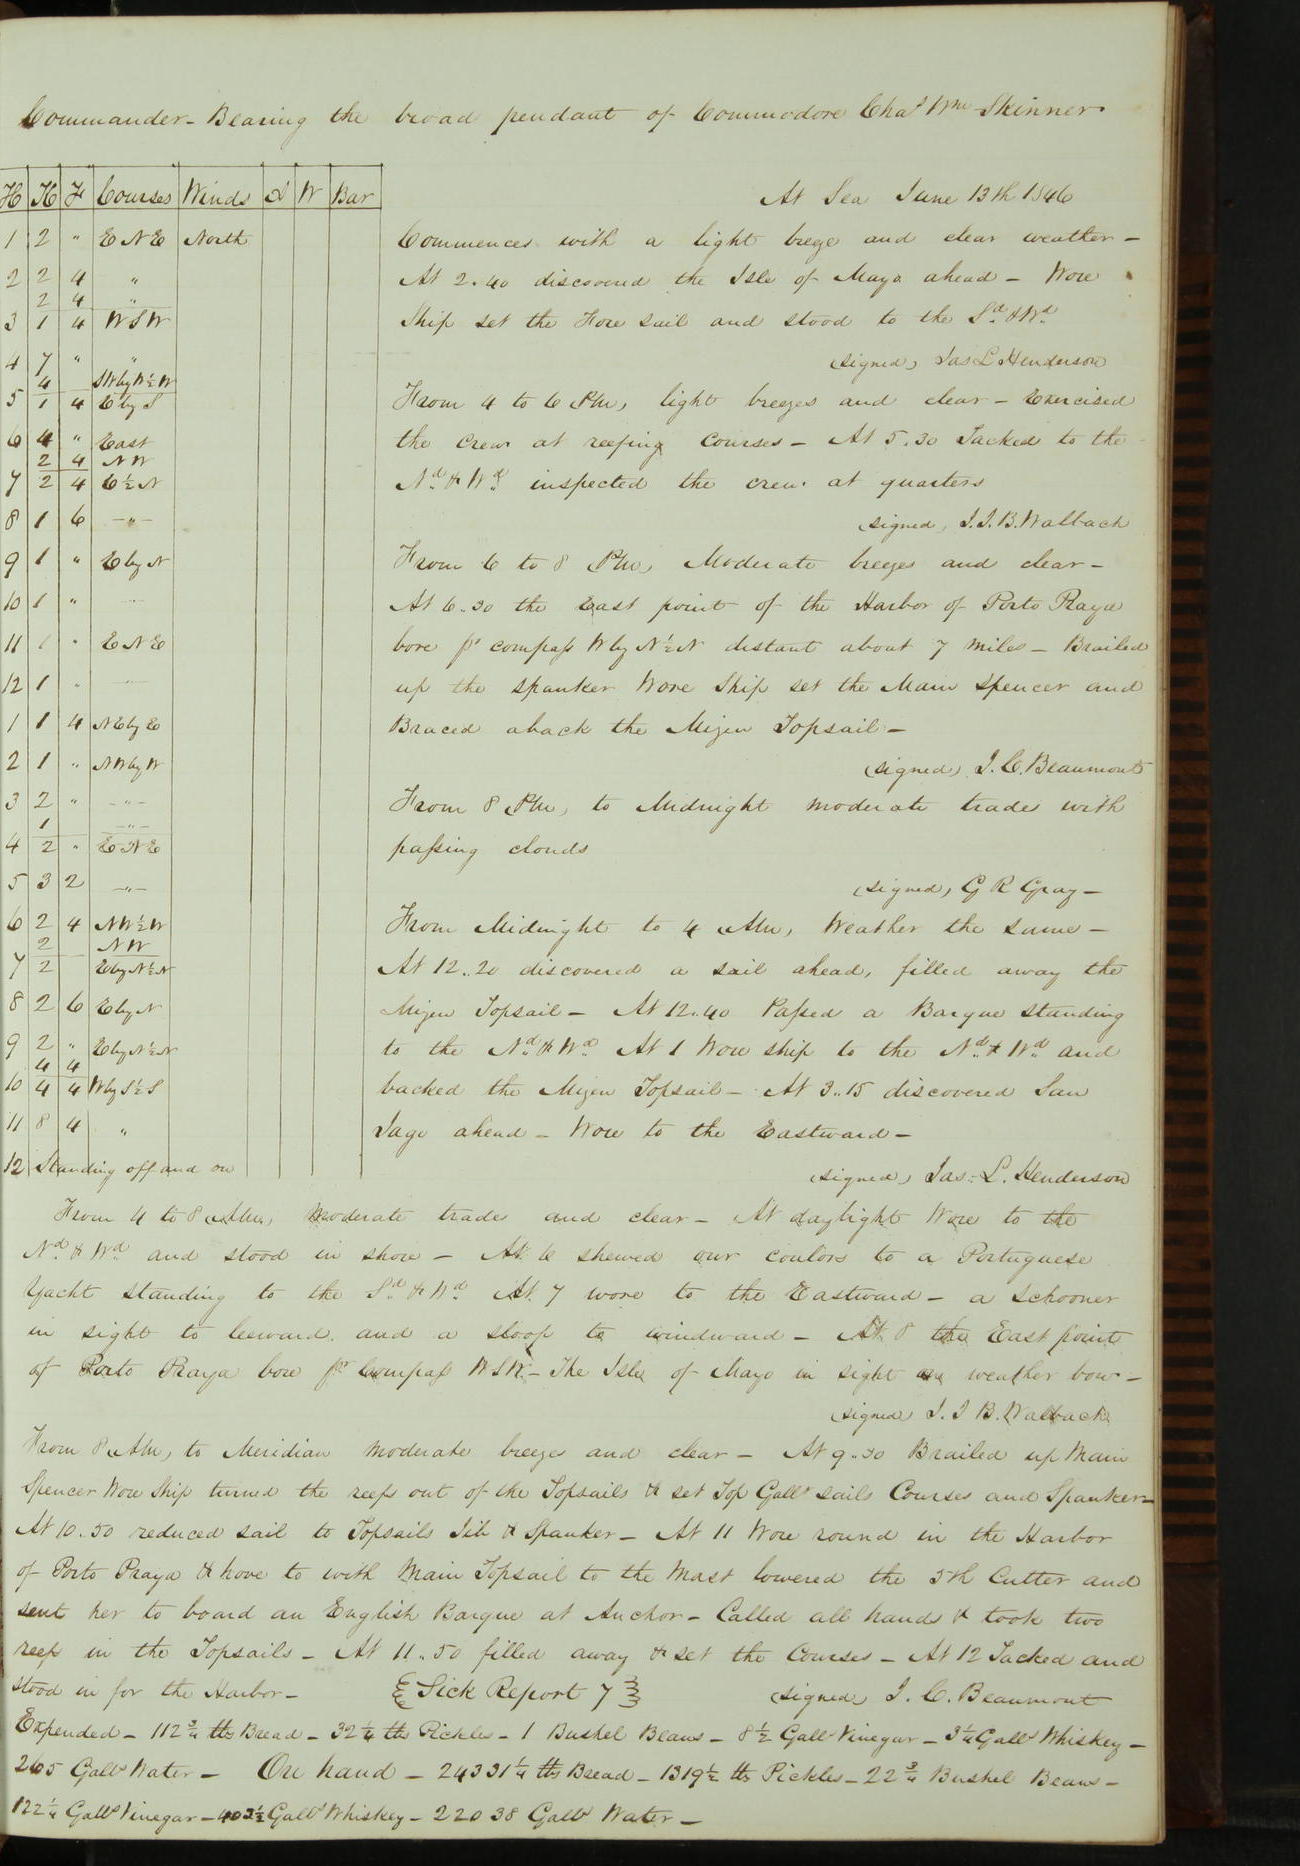 Commander - Bearing the broad pendant of Commodore Chas Wm Skinner
H K F Courses Winds D W Bar
At Sea June 13th 1846
1 2 " E N E North
Commences with a light breeze and clear weather -
2 2 4 "
At 2.40 discovered the Isle of Mayo ahead - Wore
2 4 "
3 1 4 W S W
Ship set the Fore sail and stood to the Sd & Wd
4 7 " "
(signed) Jas L Henderson
4 SW by W ½ W
5 1 4 E by S
From 4 to 6 PM, light breezes and clear - Exercised
6 4 " East
the crew at reefing Courses - At 5.30 Tacked to the
2 4 N W
7 2 4 E ½ N
Nd & Wd inspected the crew at quarters
8 1 6 - " -
(signed) J. J. B. Walbach
9 1 " E by N
From 6 to 8 PM, Moderate breezes and clear -
10 1 "
At 6.30 the East point of the Harbor of Porto Praya
11 1 " E N E
bore pr compass W by N ½ N distant about 7 miles - Brailed
12 1 "
up the spanker Wore Ship set the Main Spencer and
1 1 4 N E by E
Braced aback the Mizen Topsail -
2 1 " N W by W
(signed) J. C. Beaumont
3 2 " - " -
From 8 PM, to Midnight moderate trades with
1 - " -
4 2 " E N E
passing clouds
5 3 2 - " -
(signed) G R Gray -
6 2 4 N W ½ W
From Midnight to 4 AM, Weather the same -
2 N W
7 2 E by N ½ N
At 12..20 discovered a sail ahead, filled away the
8 2 6 E by N
Mizen Topsail - At 12..40 Passed a Barque standing
9 2 " E by N ½ N
to the Nd & Wd At 1 Wore ship to the Nd & Wd and
4 4
10 4 4 W by S ½ S
backed the Mizen Topsail - At 3..15 discovered San
11 8 4 "
Jago ahead - Wore to the Eastward -
12 Standing off and on
(signed) Jas. L. Henderson
From 4 to 8 AM, moderate trades and clear - At daylight Wore to the
Nd & Wd and stood in shore - At 6 shewed our coulors to a Portuguese
Yacht standing to the Sd & Wd At 7 wore to the Eastward - a schooner
in sight to leeward and a sloop to windward - At 8 the East point
of Porto Praya bore pr Compass W S W. - The Isle of Mayo in sight on weather bow -
(signed) J. J B. Walback
From 8 AM, to Meridian moderate breezes and clear - At 9..30 Brailed up Main
Spencer Wore Ship turned the reefs out of the Topsails & set Top Gallt sails Courses and Spanker -
At 10.50 reduced sail to Topsails Jib & Spanker - At 11 Wore round in the Harbor
of Porto Praya & hove to with Main Topsail to the Mast lowered the 5th Cutter and
sent her to board an English Barque at Anchor - Called all hands & took two
reefs in the Topsails - At 11..50 filled away & set the Courses - At 12 Tacked and
stood in for the Harbor - { Sick Report 7 } (signed) J. C. Beaumont
Expended - 112 ¾ lbs Bread - 32 ¼ lbs Pickles - 1 Bushel Beans - 8 ½ Galls Vinegar - 3 ¼ Galls Whiskey -
265 Galls Water - On hand - 24331 ¼ lbs Bread - 1319 ½ lbs Pickles - 22 ¾ Bushel Beans -
122 ¼ Galls Vinegar - 403 ½ Galls Whiskey - 22038 Galls Water -